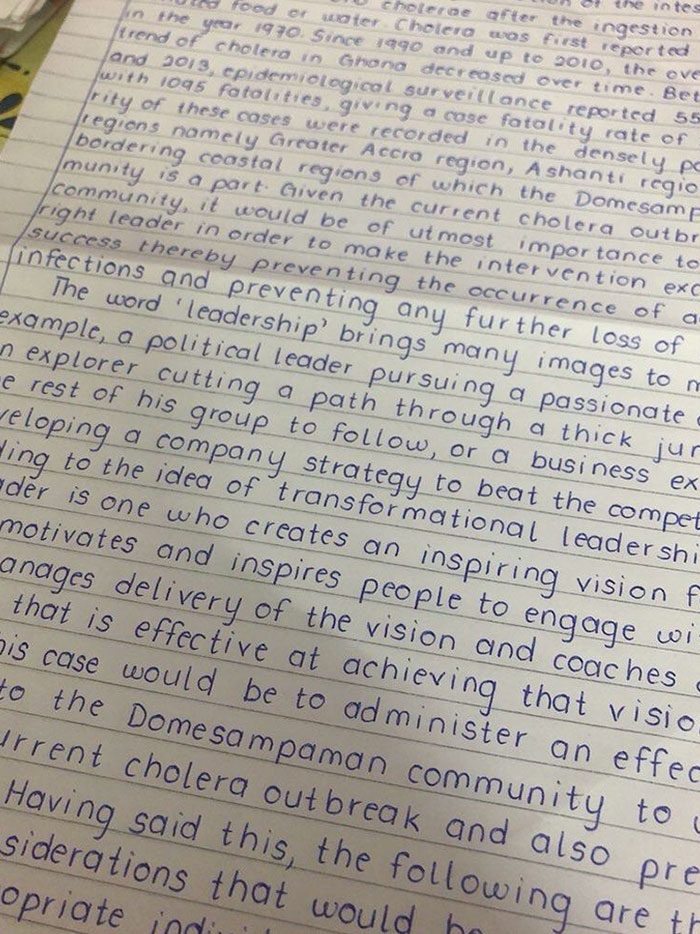 food or water. Cholera was first reported
in the year 1970. Since 1990 and up to 2010, the
trend of cholera in Ghana decreased over time.
and 2013, epidemiological surveillance reported 55
with 1095 fatalities, giving a case fatality rate of
rity of these cases were recorded in the densely
regions namely Greater Accra region, Ashanti
bordering coastal regions of which the
munity is a part. Given the current cholera
community, it would be of utmost importance to
right leader in order to make the intervention
success thereby preventing the occurrence of
infections and preventing any further loss of
The word 'leadership' brings many images to
example, a political leader pursuing a passionate
n explorer cutting a path through a thick
e rest of his group to follow, or a business
veloping a company strategy to beat the
ding to the idea of transformational
der is one who creates an inspiring vision
motivates and inspires people to engage
anages delivery of the vision and coaches
that is effective at achieving that
is case would be to administer an
to the Domesampaman community to
urrent cholera outbreak and also
Having said this, the following are
siderations that would
opriate